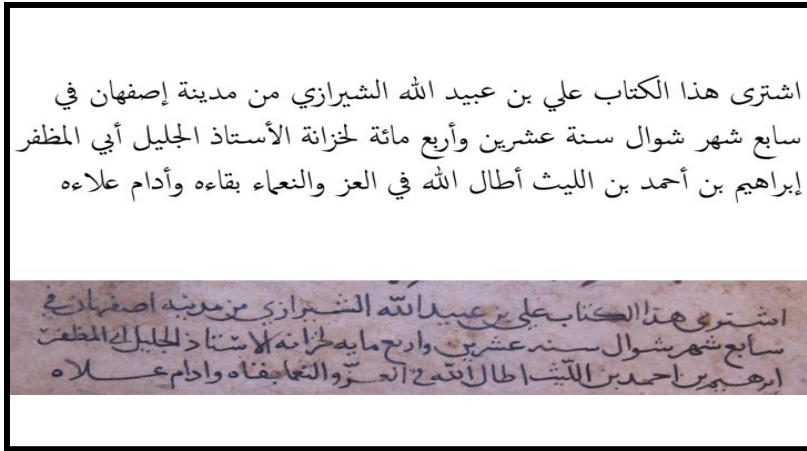 اشترى هذا الكتاب علي بن عبيد الله الشيرازي من مدينة إصفهان في
سابع شهر شوال سنة عشرين وأربع مائة لخزانة الأستاذ الجليل أبي المظفر
إبراهيم بن أحمد بن الليث أطال الله في العز والنعماء بقاءه وأدام علاءه
اشترى هذا الكتاب على بن عبيد الله الشيرازي من مدينه اصفهان في
سابع شهر شوال سنه عشرين واربع مايه لخزانه الاستاذ الجليل ابى المظفر
ابرهيم بن احمد بن الليث اطال الله في العز والنعما بقاه وادام علاه